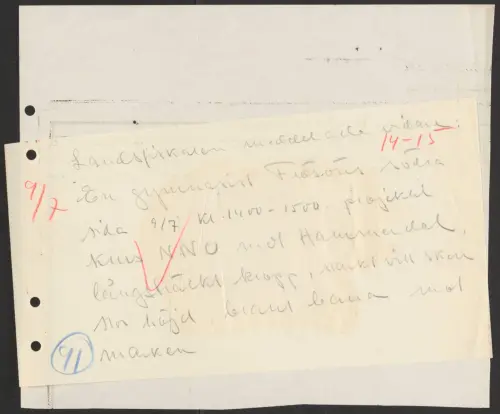 Landsfiskalen meddelade vidare:
14-15
9/7
En gymnasist Frösöns södra
sida 9/7 kl. 1400-1500 projektil
kurs NNO mot Hammerdal,
långsträckt kropp,
stor höjd, brant bana mot
marken
91